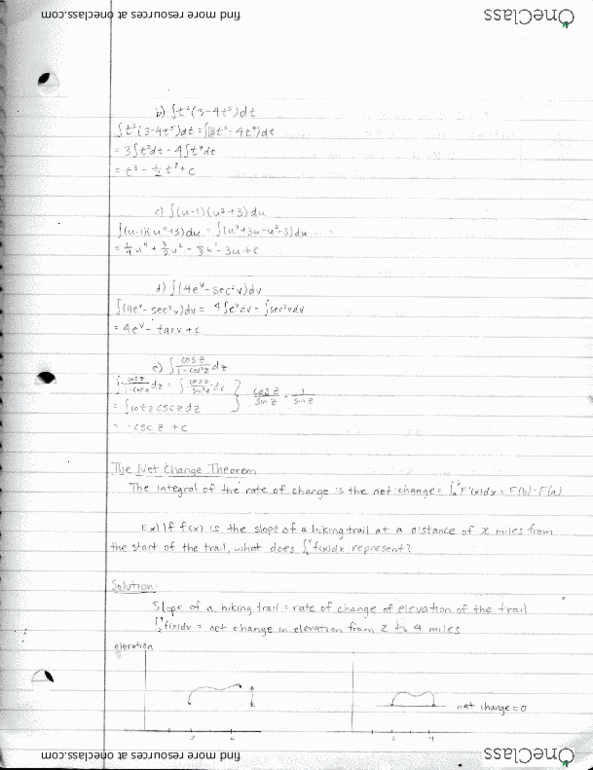 find more resources at oneclass.com
OneClass
b) ∫t²(3-4t⁵)dt
∫t²(3-4t⁵)dt = ∫(3t²-4t⁷)dt
= 3∫t²dt - 4∫t⁷dt
= t³ - ½t⁸ + C
c) ∫(u-1)(u²+3)du
∫(u-1)(u²+3)du = ∫(u³+3u-u²-3)du
= ¼u⁴ + 3/2u² - - 3u + C
d) ∫(4eᵛ - sec²v)dv
∫(4eᵛ - sec²v)dv = 4∫eᵛdv - ∫sec²vdv
= 4eᵛ - tanv + C
e) ∫ cosz/1-cos²z dz
∫ cosz/1-cos²z dz = ∫ cosz/sin²z dz } cosz/sinz · 1/sinz
= ∫cotz cscz dz
= -csc z + C
The Net Change Theorem
The integral of the rate of change is the net change = ∫ₐᵇF'(x)dx = F(b)-F(a)
Ex) If f(x) is the slope of a hiking trail at a distance of x miles from
the start of the trail, what does ∫f(x)dx represent?
Solution:
Slope of a hiking trail = rate of change of elevation of the trail
∫₂⁴f(x)dx = net change in elevation from 2 to 4 miles
elevation
net change = 0
2
2 4
find more resources at oneclass.com
OneClass